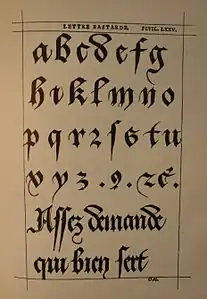 LETTRE BASTARDE. FEVIL. LXXV.
a b c d e f g
h i k l m n o
p q r ꝛ ſ s t u
v y z . 9 . ⁊ . &.
Aſſez demande
qui bien ſert